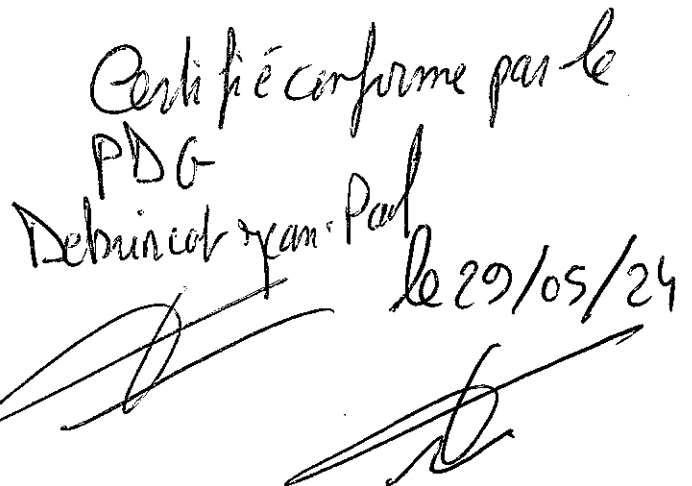 Certifié conforme par le
PDG
Debuincat Jean-Paul
le 29/05/24